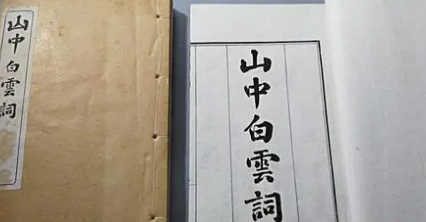 山中白雲詞
山中白雲詞